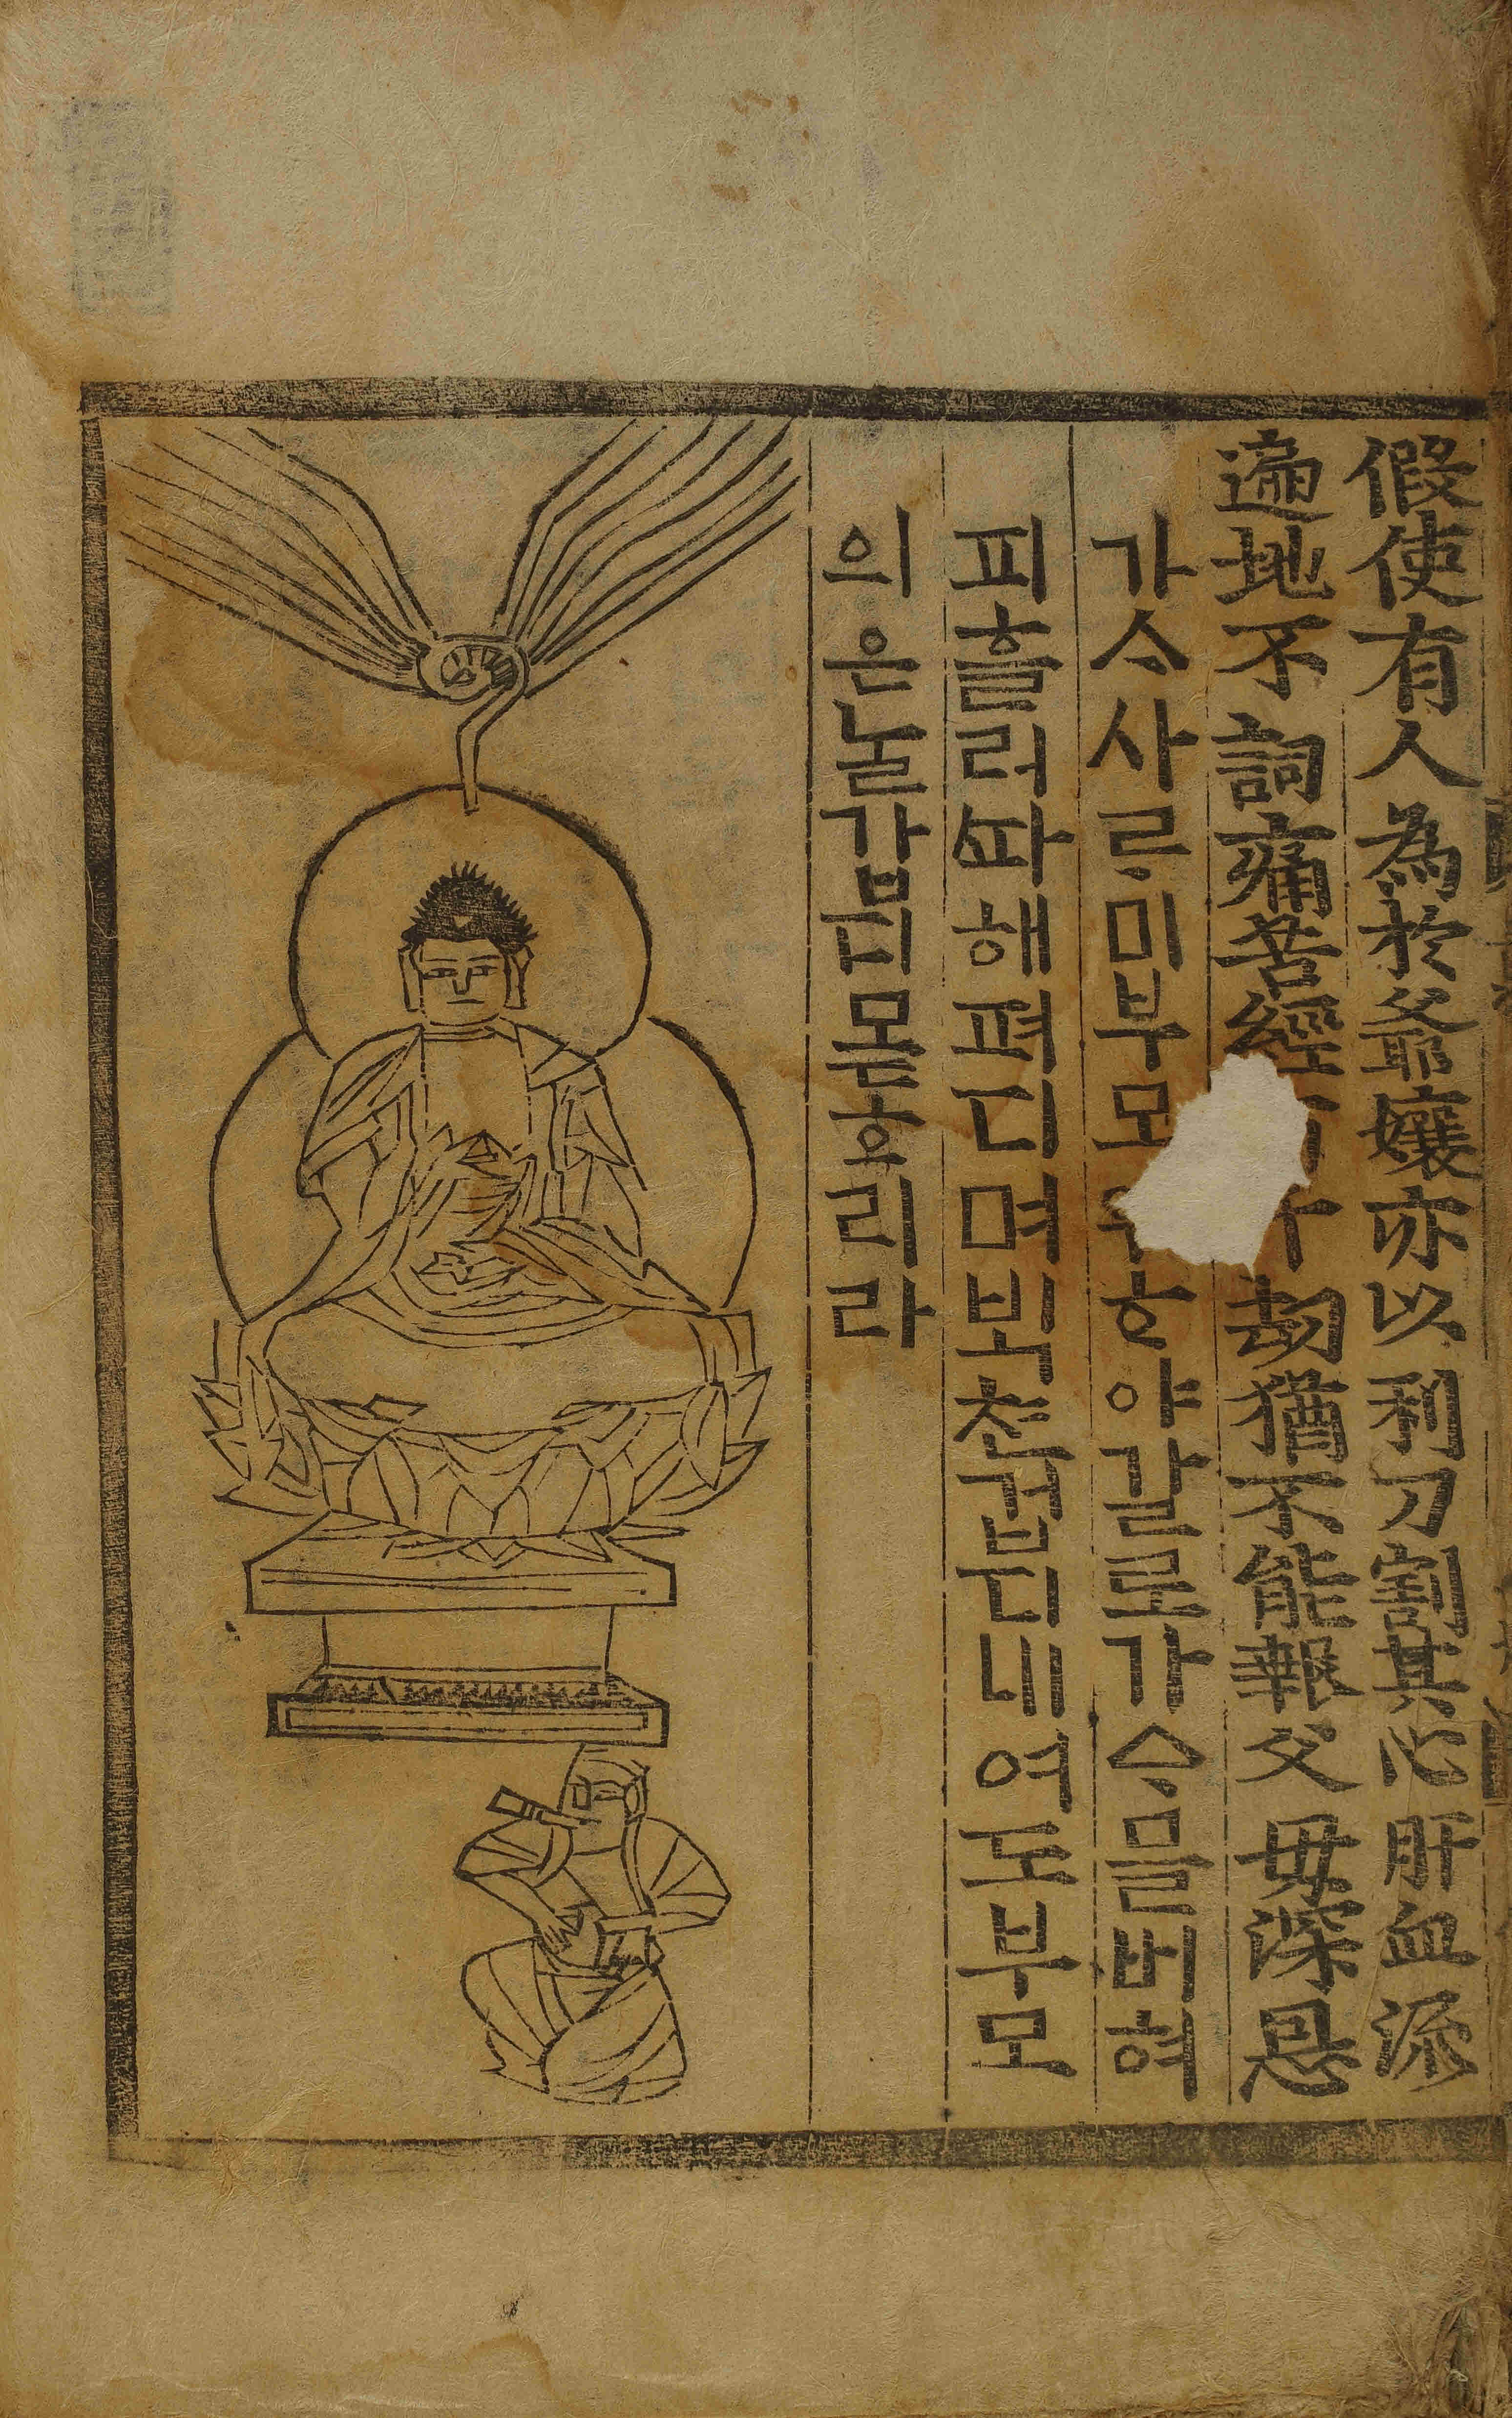 假使有人為於爺孃亦以利刀割其心肝血流
遍地不詞痛苦經劫猶不能報父母深恩
가ᄉᆞ사ᄅᆞ미부모ᄒᆞ야갈로가ᅀᆞ믈버혀
피흘러ᄯᅡ해펴디며ᄇᆡᆨ쳔겁디내여도부모
의은놀갑디몯ᄒᆞ리라